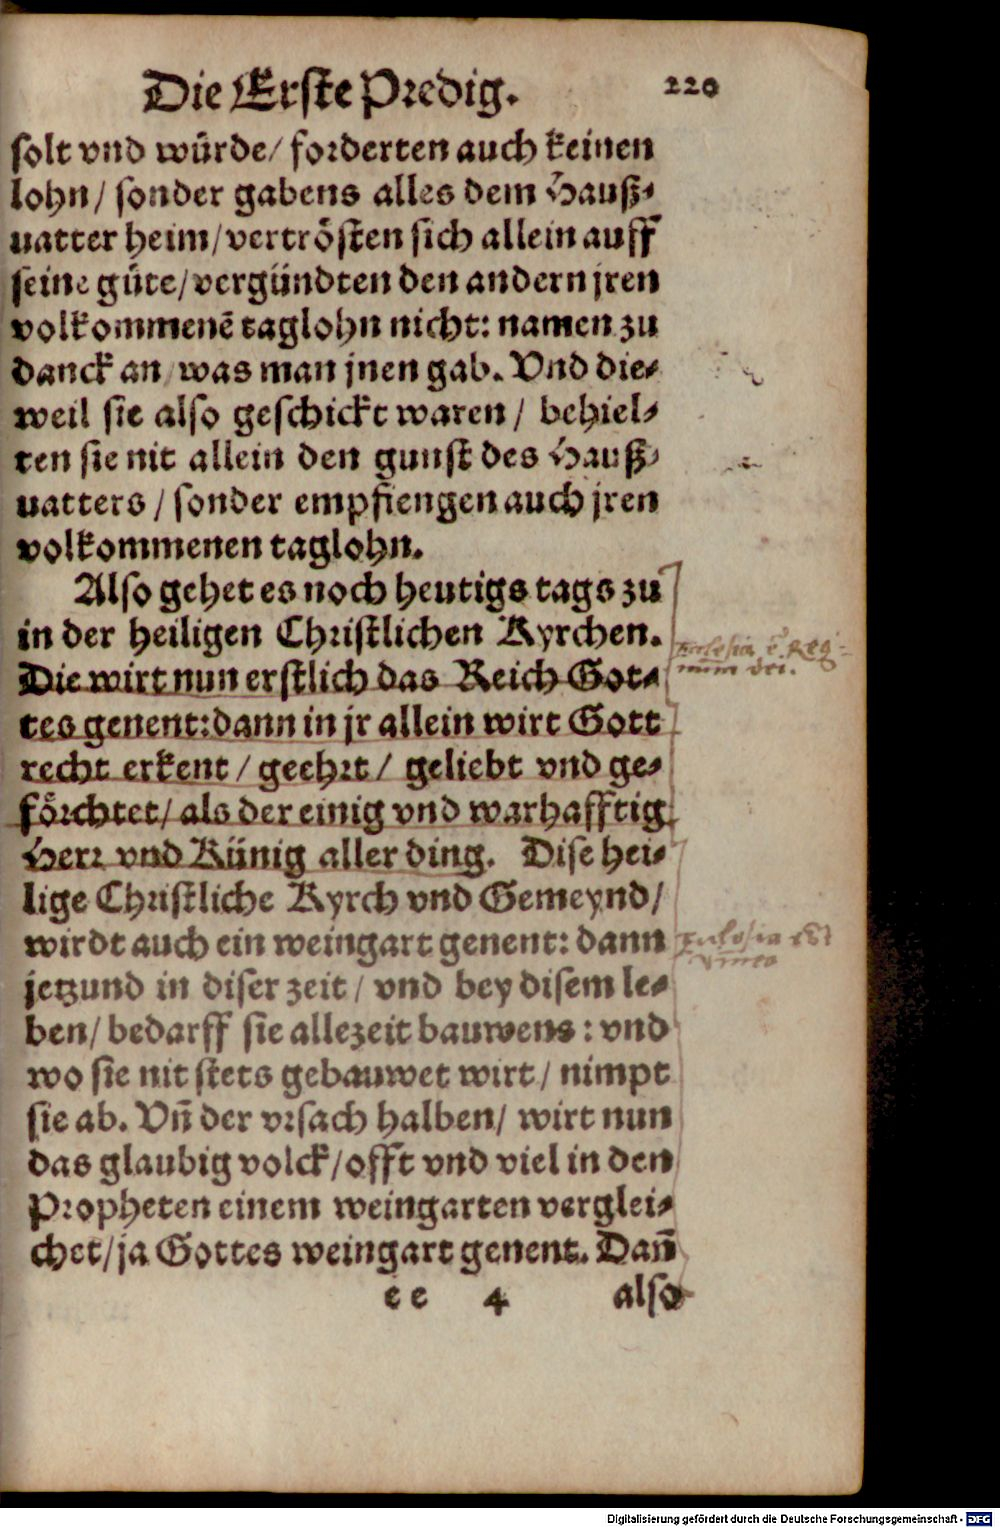 Die Erste Predig. 220
solt vnd wuͤrde/ forderten auch keinen
lohn/ sonder gabens alles dem Hauß-
uatter heim/ vertroͤsten sich allein auff
seine guͤte/ vergündten den andern jren
volkommenē taglohn nicht: namen zu
danck an/ was man jnen gab. Vnd die-
weil sie also geschickt waren/ behiel-
ten sie nit allein den gunst des Hauß-
uatters/ sonder empfiengen auch jren
volkommenen taglohn.
Also gehet es noch heutigs tags zu
in der heiligen Christlichen Kyrchen.
Die wirt nun erstlich das Reich Got-
tes genent: dann in jr allein wirt Gott
recht erkent/ geehrt/ geliebt vnd ge-
foͤrchtet/ als der einig vnd warhafftig
Herr vnd Künig aller ding. Dise hei-
lige Christliche Kyrch vnd Gemeynd/
wirdt auch ein weingart genent: dann
jetzund in diser zeit/ vnd bey disem le-
ben/ bedarff sie allezeit bauwens: vnd
wo sie nit stets gebauwet wirt/ nimpt
sie ab. Vn̄ der vrsach halben/ wirt nun
das glaubig volck/ offt vnd viel in den
Propheten einem weingarten verglei-
chet/ ja Gottes weingart genent. Dan̄
ee 4 also
Ecclesia ē Reg-
num dei.
Ecclesia est
vinea
Digitalisierung gefördert durch die Deutsche Forschungsgemeinschaft - DFG